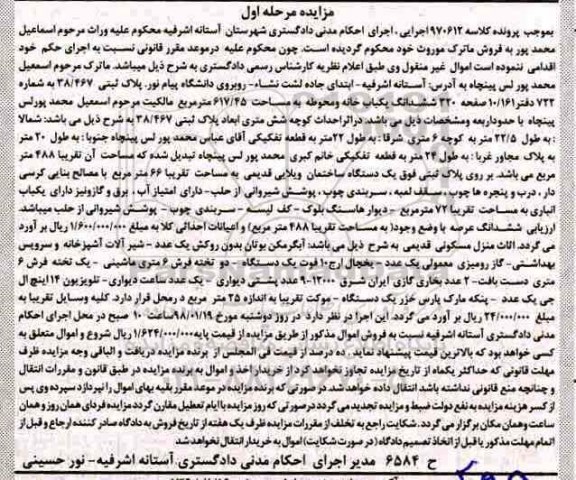 مزایده مرحله اول
بموجب پرونده کلاسه ۹۷۰۶۱۲اجرایی ، اجرای احکام مدنی دادگستری شهرستان آستانه اشرفیه محکوم علیه وراث مرحوم اسماعیل
محمد پور به فروش ماترک موروث خود محکوم گردیده است. چون محکوم علیه درموعد مقرر قانونی نسبت به اجرای حکم خود
اقدامی ننموده است اموال غیر منقول وی طبق اعلام نظریه کارشناس رسمی دادگستری به شرح ذیل میباشد. ماترک مرحوم اسمعیل
محمد پور لس پینچاه به آدرس: آستانه اشرفیه- ابتدای جاده لشت نشاء- روبروی دانشگاه پیام نور. پلاک ثبتی ۳۸/۴۶۷ به شماره
۷۲۲ دفتر ۱۰/۱۶۱ صفحه ۳۲۰ ششدانگ یکباب خانه ومحوطه به مساحت ۶۱۷/۴۵ مترمربع مالکیت مرحوم اسمعیل محمد پورلس
پینچاه با حدوداربعه ومشخصات ذیل می باشد. دراثراحداث کوچه شش متری ابعاد پلاک ثبتی ۳۸/۴۶۷ به شرح ذیل می باشد: شمالا
: به طول ۲۲/۵ متر به کوچه ۶ متری شرقا : به طول ۲۲متر به قطعه تفکیکی آقای عباس محمد پور لس پینچاه جنوبا : به طول ۲۰ متر
به پلاک مجاور غربا : به طول ۲۴ متر به قطعه تفکیکی خانم کبری محمد پور لس پینچاه تبدیل شده که مساحت آن تقریبا ۴۸۸ متر
مربع می باشد. بر روی پلاک ثبتی فوق یک دستگاه ساختمان ویلایی قدیمی به مساحت تقریبا ۶۶ متر مربع با مصالح بنایی کرسی
دار ، درب و پنجره ها چوب ، سقف لمبه ، سربندی چوب ، پوشش شیروانی از حلب- دارای امتیاز آب ، برق و گازونیز دارای یکباب
انباری به مساحت تقریبا ۷۲ مترمربع - دیوار هاسنگ بلوک - کف لیسه - سربندی چوب - پوشش شیروانی از حلب میباشد.
ارزیابی ششدانگ عرصه با وضع وجود( به مساحت تقریبا ۴۸۸ متر مربع) و اعیانات احداثی کلا به مبلغ ۱/۶۰۰/۰۰۰/۰۰۰ ریال بر آورد
می گردد. اثاث منزل مسکونی قدیمی به شرح ذیل می باشد: آبگرمکن بوتان بدون روکش یک عدد - شیر آلات آشپزخانه و سرویس
بهداشتی- گاز رومیزی معمولی یک عدد - یخچال ارج۱۰فوت یک دستگاه - دو تخته فرش ۶ متری ماشینی - یک تخته فرش ۶
متری دست بافت- ۲ عدد بخاری گازی ایران شرق ۱۲۰۰۰- ۹عدد پشتی دیواری - یک عدد ساعت دیواری- تلویزیون ۱۴ اینچ ال
جی یک عدد - پنکه مارک پارس خزر یک دستگاه - موکت تقریبا به اندازه ۲۵ متر مربع در محل قرار دارد. کلیه وسایل تقریبا به
مبلغ ۲۴/۰۰۰/۰۰۰ ریال بر آورد می گردد. این اجرا در نظر دارد در روز دوشنبه مورخ ۹۸/۰۱/۱۹ ساعت ۱۰ صبح در محل اجرای احکام
مدنی دادگستری آستانه اشرفیه نسبت به فروش اموال مذکور از طریق مزایده از قیمت پایه ۱/۶۲۴/۰۰۰/۰۰۰ ریال شروع و اموال متعلق به
کسی خواهد بود که بالاترین قیمت پیشنهاد نماید. ده درصد از قیمت فی المجلس از برنده مزایده دریافت و الباقی وجه مزایده ظرف
مهلت قانونی که حداکثر یکماه از تاریخ مزایده تجاوز نخواهد کرد از خریدار اخذ و اموال به برنده مزایده در طبق قانون و مقررات انتقال
و چنانچه منع قانونی نداشته باشد انتقال داده خواهد شد. در صورتی که برنده مزایده در موعد مقرر بقیه بهای اموال را نپردازد سپرده وی پس
از کسر هزینه مزایده به نفع دولت ضبط و مزایده تجدید می گردد درصورتی که روز مزایده با ایام تعطیل مقارن گردد مزایده فردای همان روز و همان
ساعت وهمان مکان برگزار می گردد. شکایت راجع به تخلف از مقررات مزایده ظرف یک هفته از تاریخ فروش به دادگاه صادر کننده ارجاع و قبل از
اتمام مهلت مذکور یا قبل از اتخاذ تصمیم دادگاه (در صورت شکایت) اموال به خریدار انتقال نخواهد شد
ح ۶۵۸۴ مدیر اجرای احکام مدنی دادگستری آستانه اشرفیه- نور حسینی